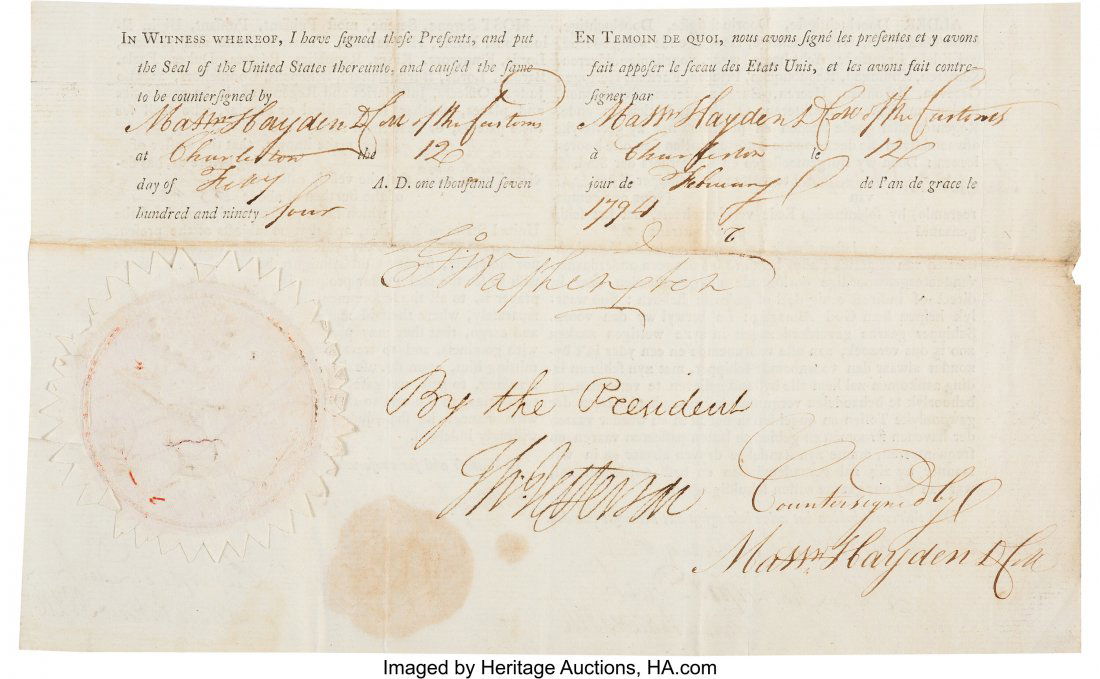 IN WITNESS WHEREOF, I have signed these Presents, and put
the Seal of the United States thereunto, and caused the same
to be countersigned by
Hayden D Coll of the Customs
at Charleston the 12
day of Feby A. D. one thousand seven
hundred and ninety four
EN TEMOIN DE QUOI, nous avons signé les presentes et y avons
fait apposer le sceau des Etats Unis, et les avons fait contre-
signer par
Hayden D Coll of the Customs
à Charleston le 12
jour de February de l'an de grace le
1794
Go Washington
By the President
Th: Jefferson
Countersigned by
Hayden D Coll
Imaged by Heritage Auctions, HA.com